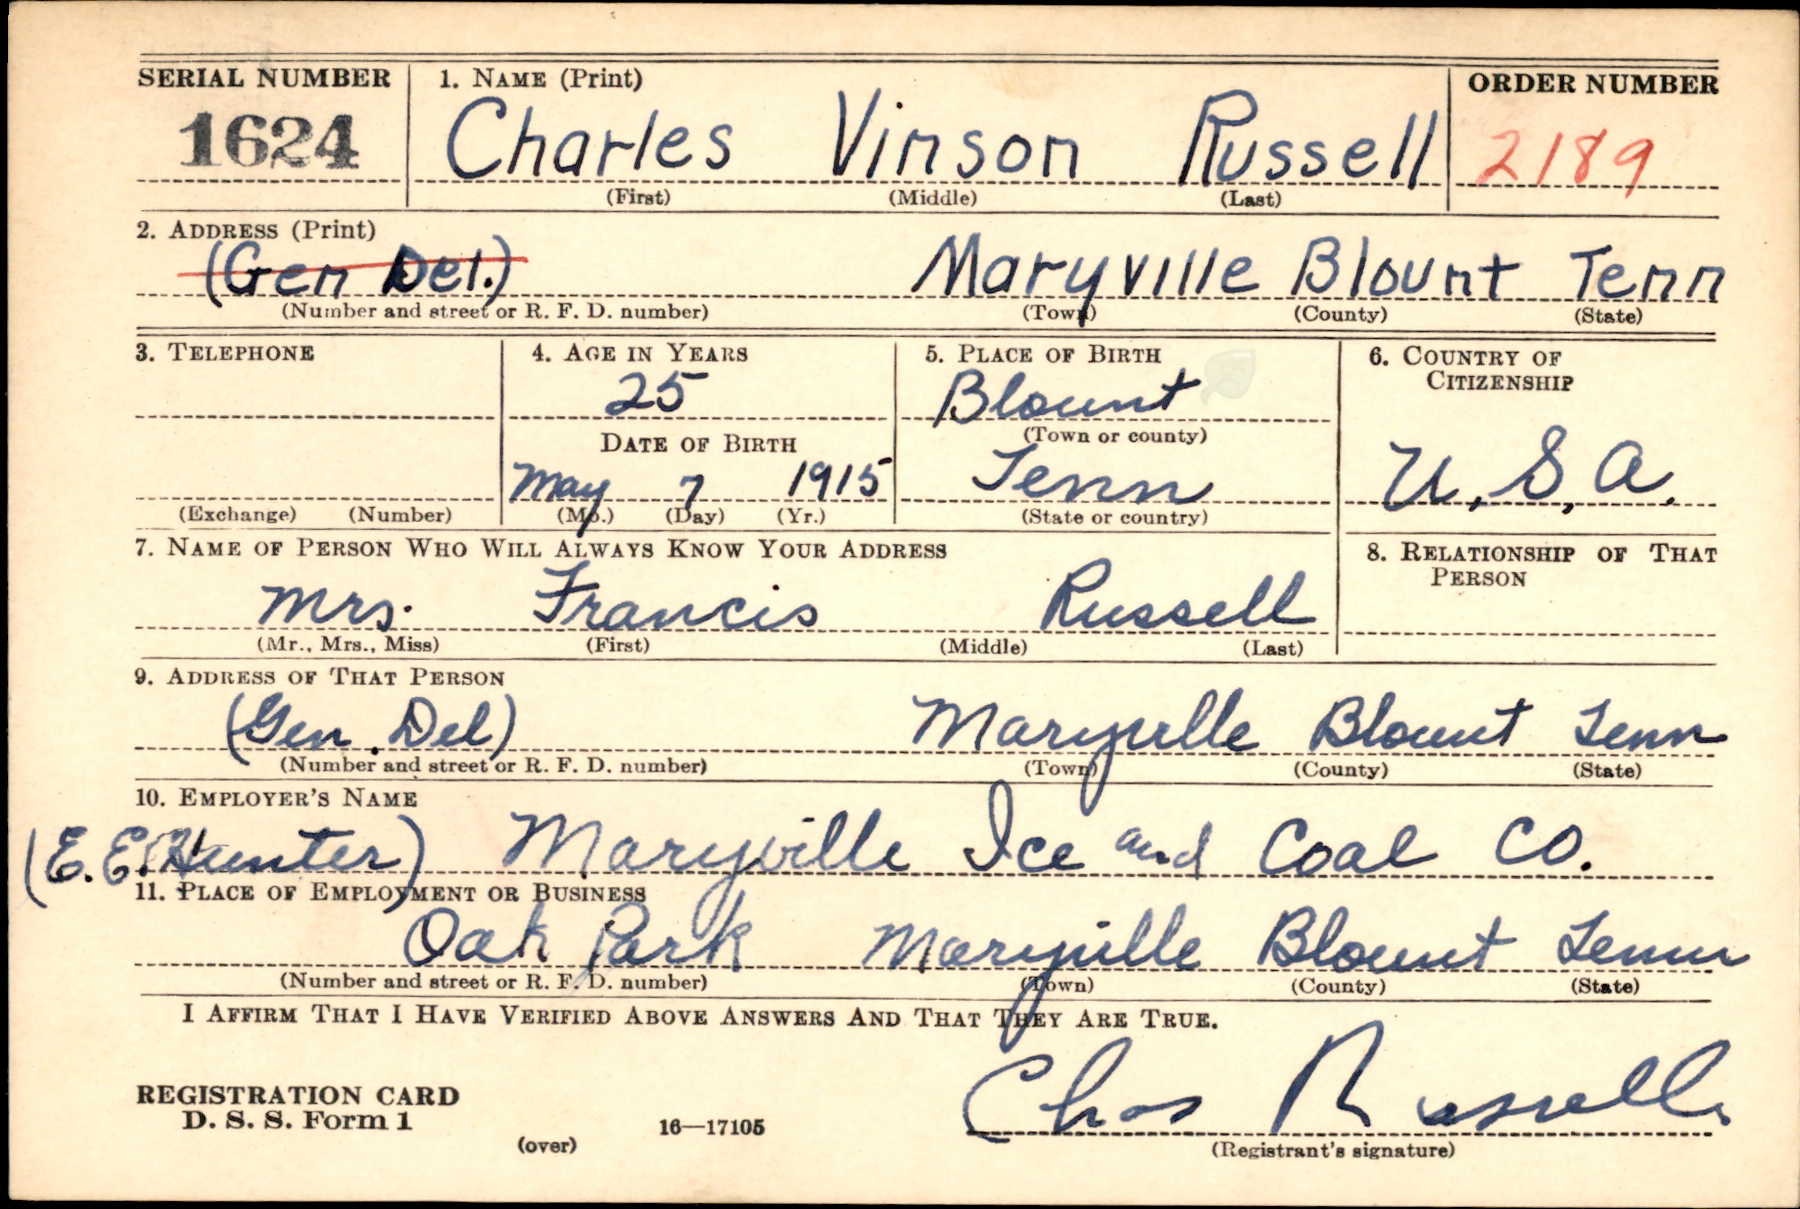 SERIAL NUMBER 1. NAME (Print) ORDER NUMBER
1624 Charles Vinson Russell 2189
(First) (Middle) (Last)
2. ADDRESS (Print)
(Gen Del.) Maryville Blount Tenn
(Number and street or R. F. D. number) (Town) (County) (State)
3. TELEPHONE 4. AGE IN YEARS 5. PLACE OF BIRTH 6. COUNTRY OF
CITIZENSHIP
25 Blount
DATE OF BIRTH (Town or county)
May 7 1915 Tenn U.S.A.
(Exchange) (Number) (Mo.) (Day) (Yr.) (State or country)
7. NAME OF PERSON WHO WILL ALWAYS KNOW YOUR ADDRESS 8. RELATIONSHIP OF THAT
PERSON
Mrs. Francis Russell
(Mr., Mrs., Miss) (First) (Middle) (Last)
9. ADDRESS OF THAT PERSON
(Gen. Del) Maryville Blount Tenn
(Number and street or R. F. D. number) (Town) (County) (State)
10. EMPLOYER'S NAME
(E. E. Hunter) Maryville Ice and Coal Co.
11. PLACE OF EMPLOYMENT OR BUSINESS
Oak Park Maryville Blount Tenn
(Number and street or R. F. D. number) (Town) (County) (State)
I AFFIRM THAT I HAVE VERIFIED ABOVE ANSWERS AND THAT THEY ARE TRUE.
Chas Russell
REGISTRATION CARD
D. S. S. Form 1 (over) 16—17105 (Registrant's signature)